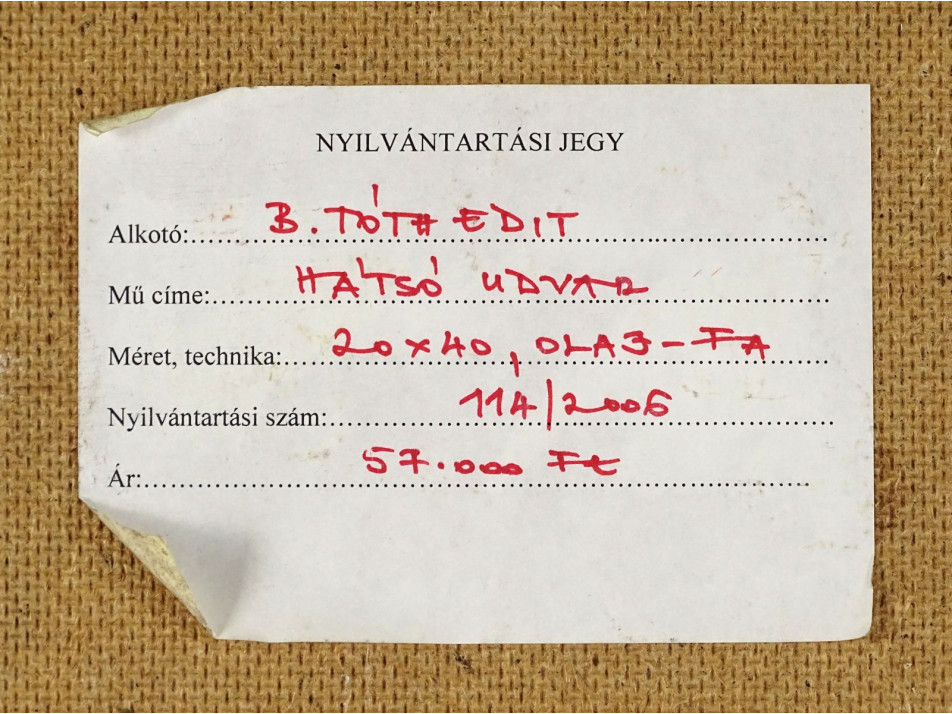 NYILVÁNTARTÁSI JEGY
Alkotó: B. TÓTH EDIT
Mű címe: HÁTSÓ UDVAR
Méret, technika: 20 x 40, OLAJ - FA
Nyilvántartási szám: 114/2006
Ár: 57.000 Ft